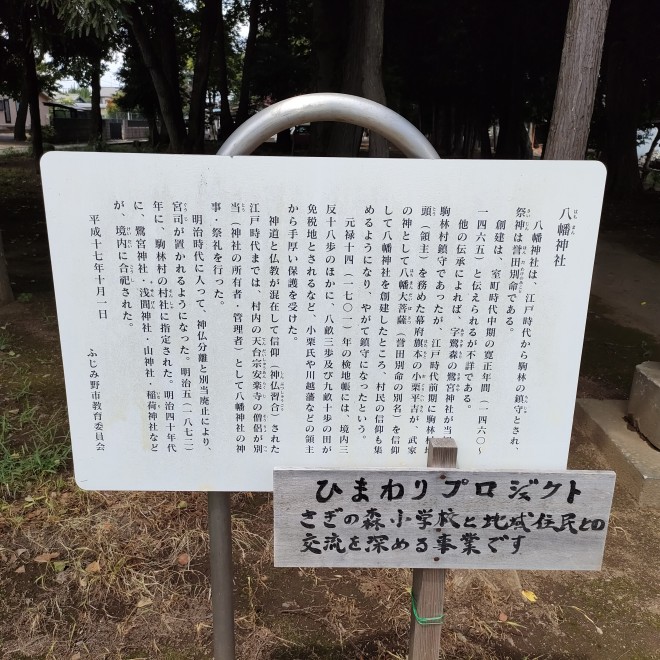 八幡神社
八幡神社は、江戸時代から駒林の鎮守とされ、
祭神は誉田別命である。
創建は、室町時代中期の寛正年間(一四六〇~
一四六五)と伝えられるが不詳である。
他の伝承によれば、字鷺森の鷺宮神社が当
駒林村鎮守であったが、江戸時代前期に駒林村地
頭(領主)を務めた幕府旗本の小栗平吉が、武家
の神として八幡大菩薩(誉田別命の別名)を信仰
して八幡神社を創建したところ、村民の信仰も集
めるようになり、やがて鎮守になったという。
元禄十四(一七〇一)年の検地帳には、境内三
反十八歩のほかに、八畝三歩及び九畝十歩の田が
免税地とされるなど、小栗氏や川越藩などの領主
から手厚い保護を受けた。
神道と仏教が混在して信仰(神仏習合)された
江戸時代までは、村内の天台宗安楽寺の僧侶が別
当(神社の所有者・管理者)として八幡神社の神
事・祭礼を行った。
明治時代に入って、神仏分離と別当廃止により、
宮司が置かれるようになった。明治五(一八七二)
年に、駒林村の村社に指定された。明治四十年代
に、鷺宮神社・浅間神社・山神社・稲荷神社など
が、境内に合祀された。
平成十七年十月一日
ふじみ野市教育委員会
ひまわりプロジェクト
さぎの森小学校と地域住民との
交流を深める事業です